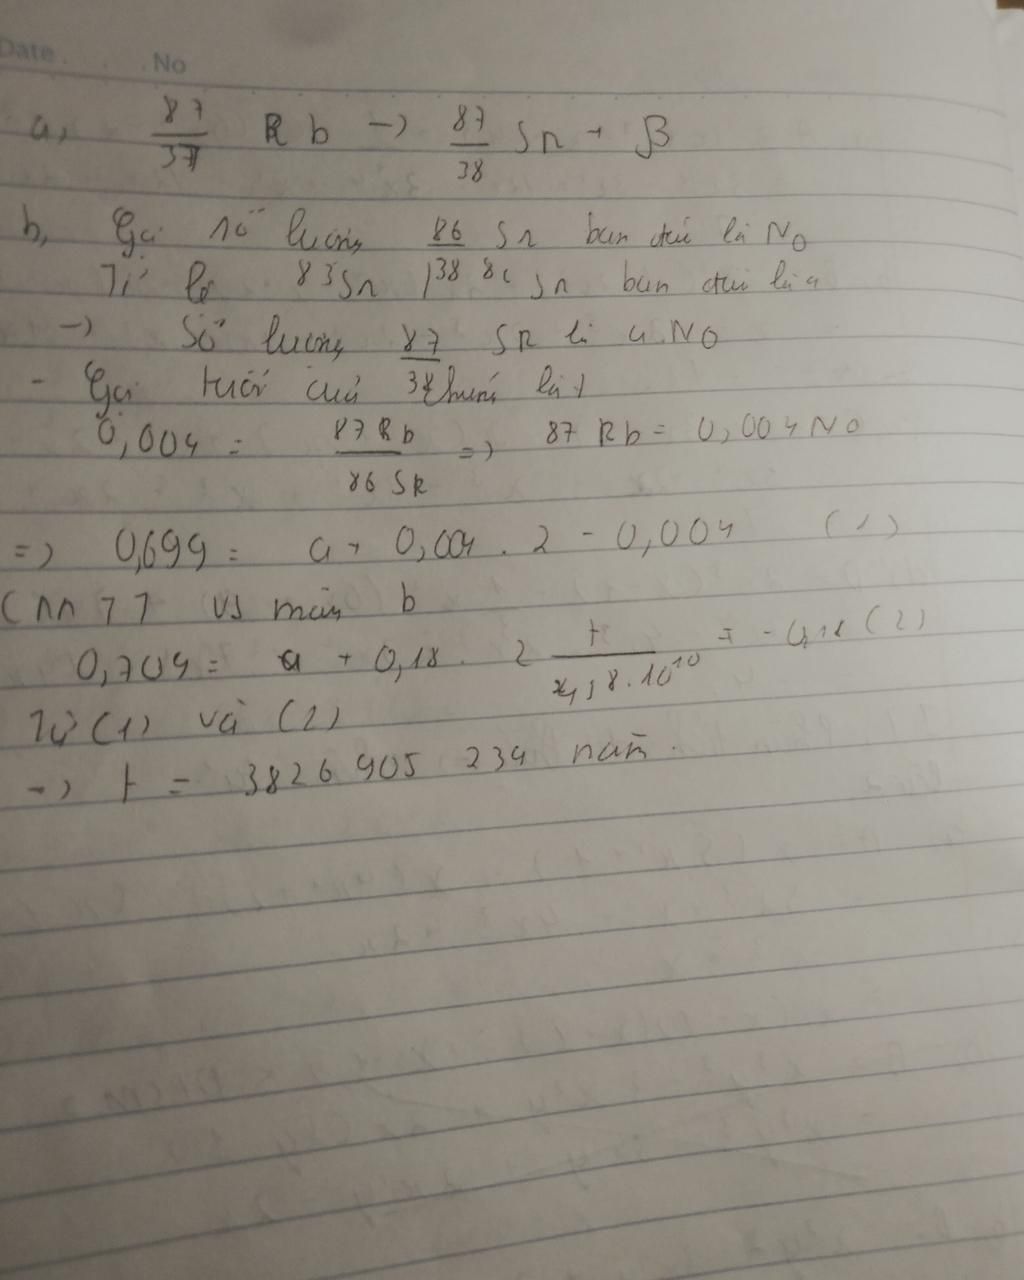 Date . . . No
a, 87/37 Rb -> 87/38 Sr + β
b, Gọi số lượng 86 Sr ban đầu là N0
Tỉ lệ 87 Sr / 38 86 Sr ban đầu là a
-> Số lượng 87/38 SR là a.N0
- Gọi tuổi của là t
0,004 = 87 Rb / 86 SR => 87 Rb = 0,004 N0
=> 0,699 = a + 0,004 . 2 - 0,004 (1)
CMTT vs mẫu b
0,704 = a + 0,18 . 2 t / 4,8.10^10 = - 0,18 (2)
Từ (1) và (2)
-> t = 3826 905 234 năm.